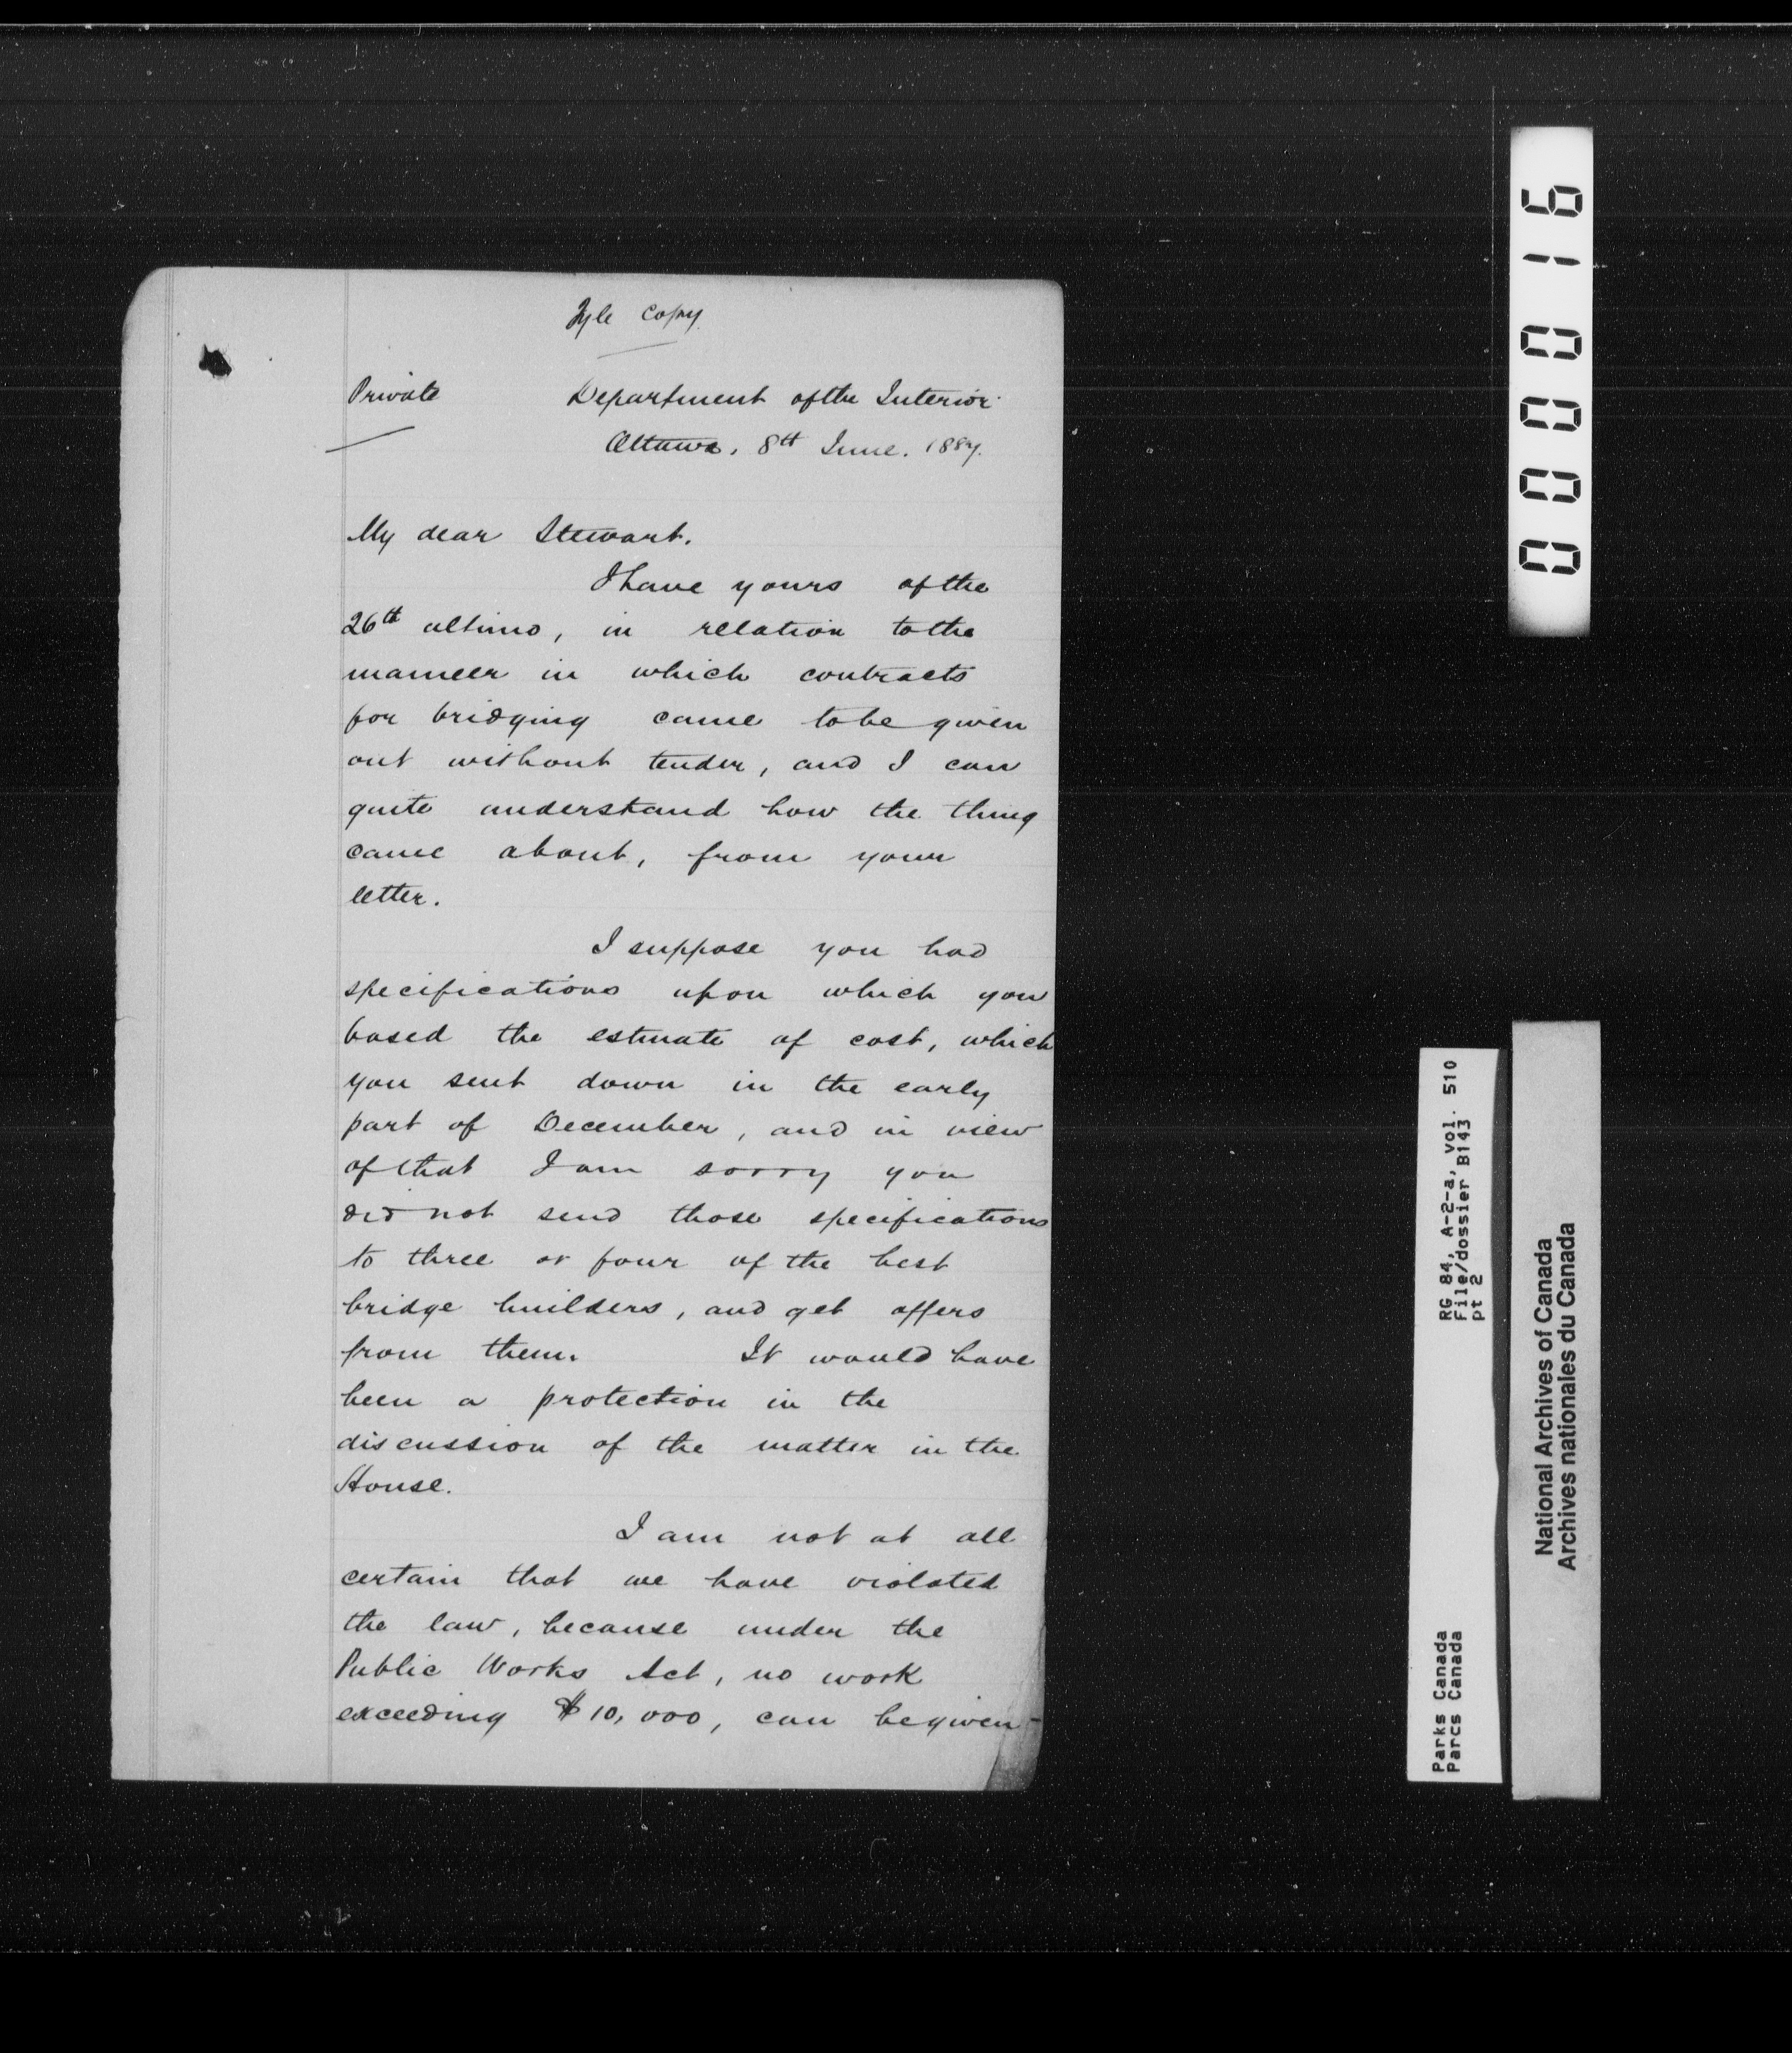 Fyle copy
Private
Department of the Interior
Ottawa, 8th June. 1887.
My dear Stewart.
I have yours of the
26th ultimo, in relation to the
manner in which contracts
for bridging came to be given
out without tender, and I can
quite understand how the thing
came about, from your
letter.
I suppose you had
specifications upon which you
based the estimate of cost, which
you sent down in the early
part of December, and in view
of that I am sorry you
did not send those specifications
to three or four of the best
bridge builders, and get offers
from them. It would have
been a protection in the
discussion of the matter in the
House.
I am not at all
certain that we have violated
the law, because under the
Public Works Act, no work
exceeding $10,000, can be given-
000016
RG 84, A-2-a, vol. 510
File/dossier B143
pt 2
Parks Canada
Parcs Canada
National Archives of Canada
Archives nationales du Canada